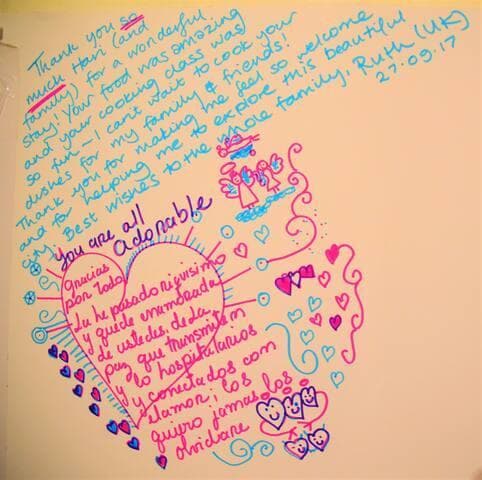 Thank you so
much Hari (and
family) for a wonderful
stay! Your food was amazing
and your cooking class was
so fun - I can't wait to cook your
dishes for my family & friends!
Thank you for making me feel so welcome
and for helping me to explore this beautiful
city. Best wishes to the whole family, Ruth (UK)
27.09.17
You are all
adorable
Gracias
por todo!
La he pasado riquisimo
y quede enamorada
de ustedes, de la
paz que transmiten
y lo hospitalarios
y conectados con
el amor; los
quiero jamas los
olvidare